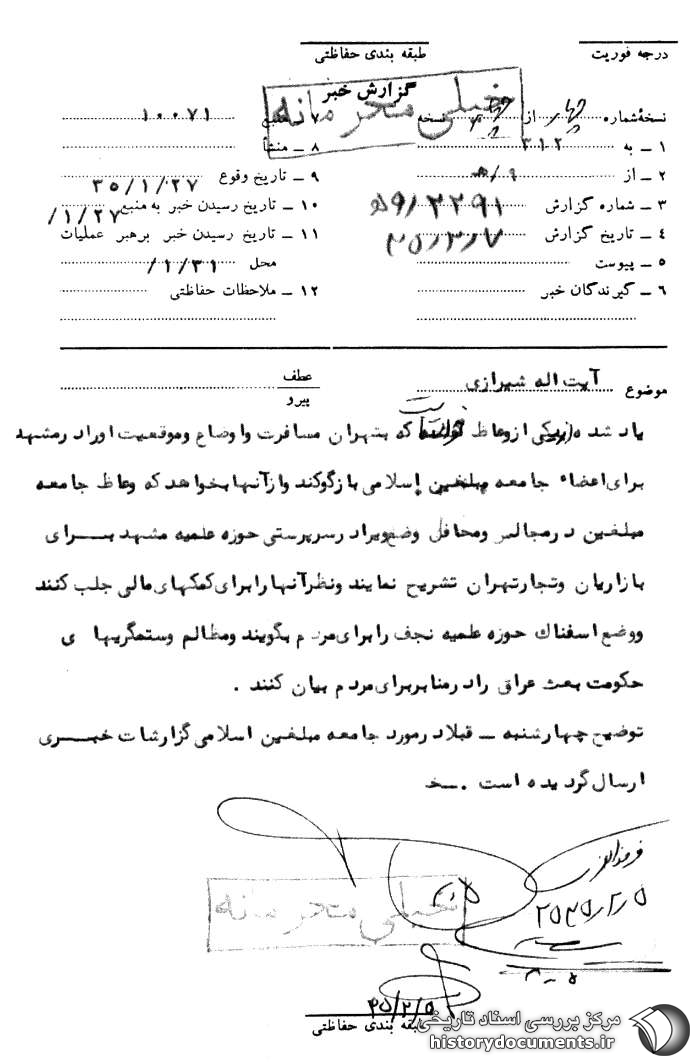 درجه فوریت
طبقه بندی حفاظتی
گزارش خبر
خیلی محرمانه
نسخهٔ شماره چهار از چهار نسخه
۱ ــ به ۳۱۲
۲ ــ از ۹/ه‍
۳ ــ شماره گزارش
۴ ــ تاریخ گزارش ۳۵/۲/۷
۵ ــ پیوست
۶ ــ گیرندگان خبر
۷ ــ منبع ۱۰۰۷۱
۸ ــ منشأ
۹ ــ تاریخ وقوع ۳۵/۱/۲۷
۱۰ ــ تاریخ رسیدن خبر به منبع ۱/۲۷/
۱۱ ــ تاریخ رسیدن خبر برهبر عملیات
محل ۱/۳۱/
۱۲ ــ ملاحظات حفاظتی
موضوع آیت اله شیرازی
عطف
پیرو
یاد شده از یکی از وعاظ خواسته که بتهران مسافرت و اوضاع و موقعیت او را در مشهد
برای اعضاء جامعه مبلغین اسلامی بازگو کند و از آنها بخواهد که وعاظ جامعه
مبلغین در مجالس و محافل وضع ویرا در سرپرستی حوزه علمیه مشهد بــرای
بازاریان و تجار تهران تشریح نمایند و نظر آنها را برای کمکهای مالی جلب کنند
و وضع اسفناک حوزه علمیه نجف را برای مردم بگویند و مظالم و ستمگریها ی
حکومت بعث عراق را در منابر برای مردم بیان کنند .
توضیح چهارشنبه ــ قبلا در مورد جامعه مبلغین اسلامی گزارشات خبــری
ارسال گردیده است .
خیلی محرمانه
۲۵۳۵/۲/۵
۳۵/۲/۵
طبقه بندی حفاظتی
مرکز بررسی اسناد تاریخی
historydocuments.ir